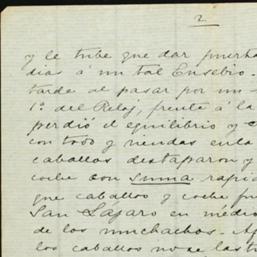 2
y le tube que dar
dias á un tal Eusebio.
tarde al pasar por un
1º del Reloj, frente á la
perdió el equilibrio y c
con todo y riendas
caballos destaparon y
coche con suma rapid
que caballos y coche fu
San Lázaro en medio
de los muchachos. A
los caballos no se les